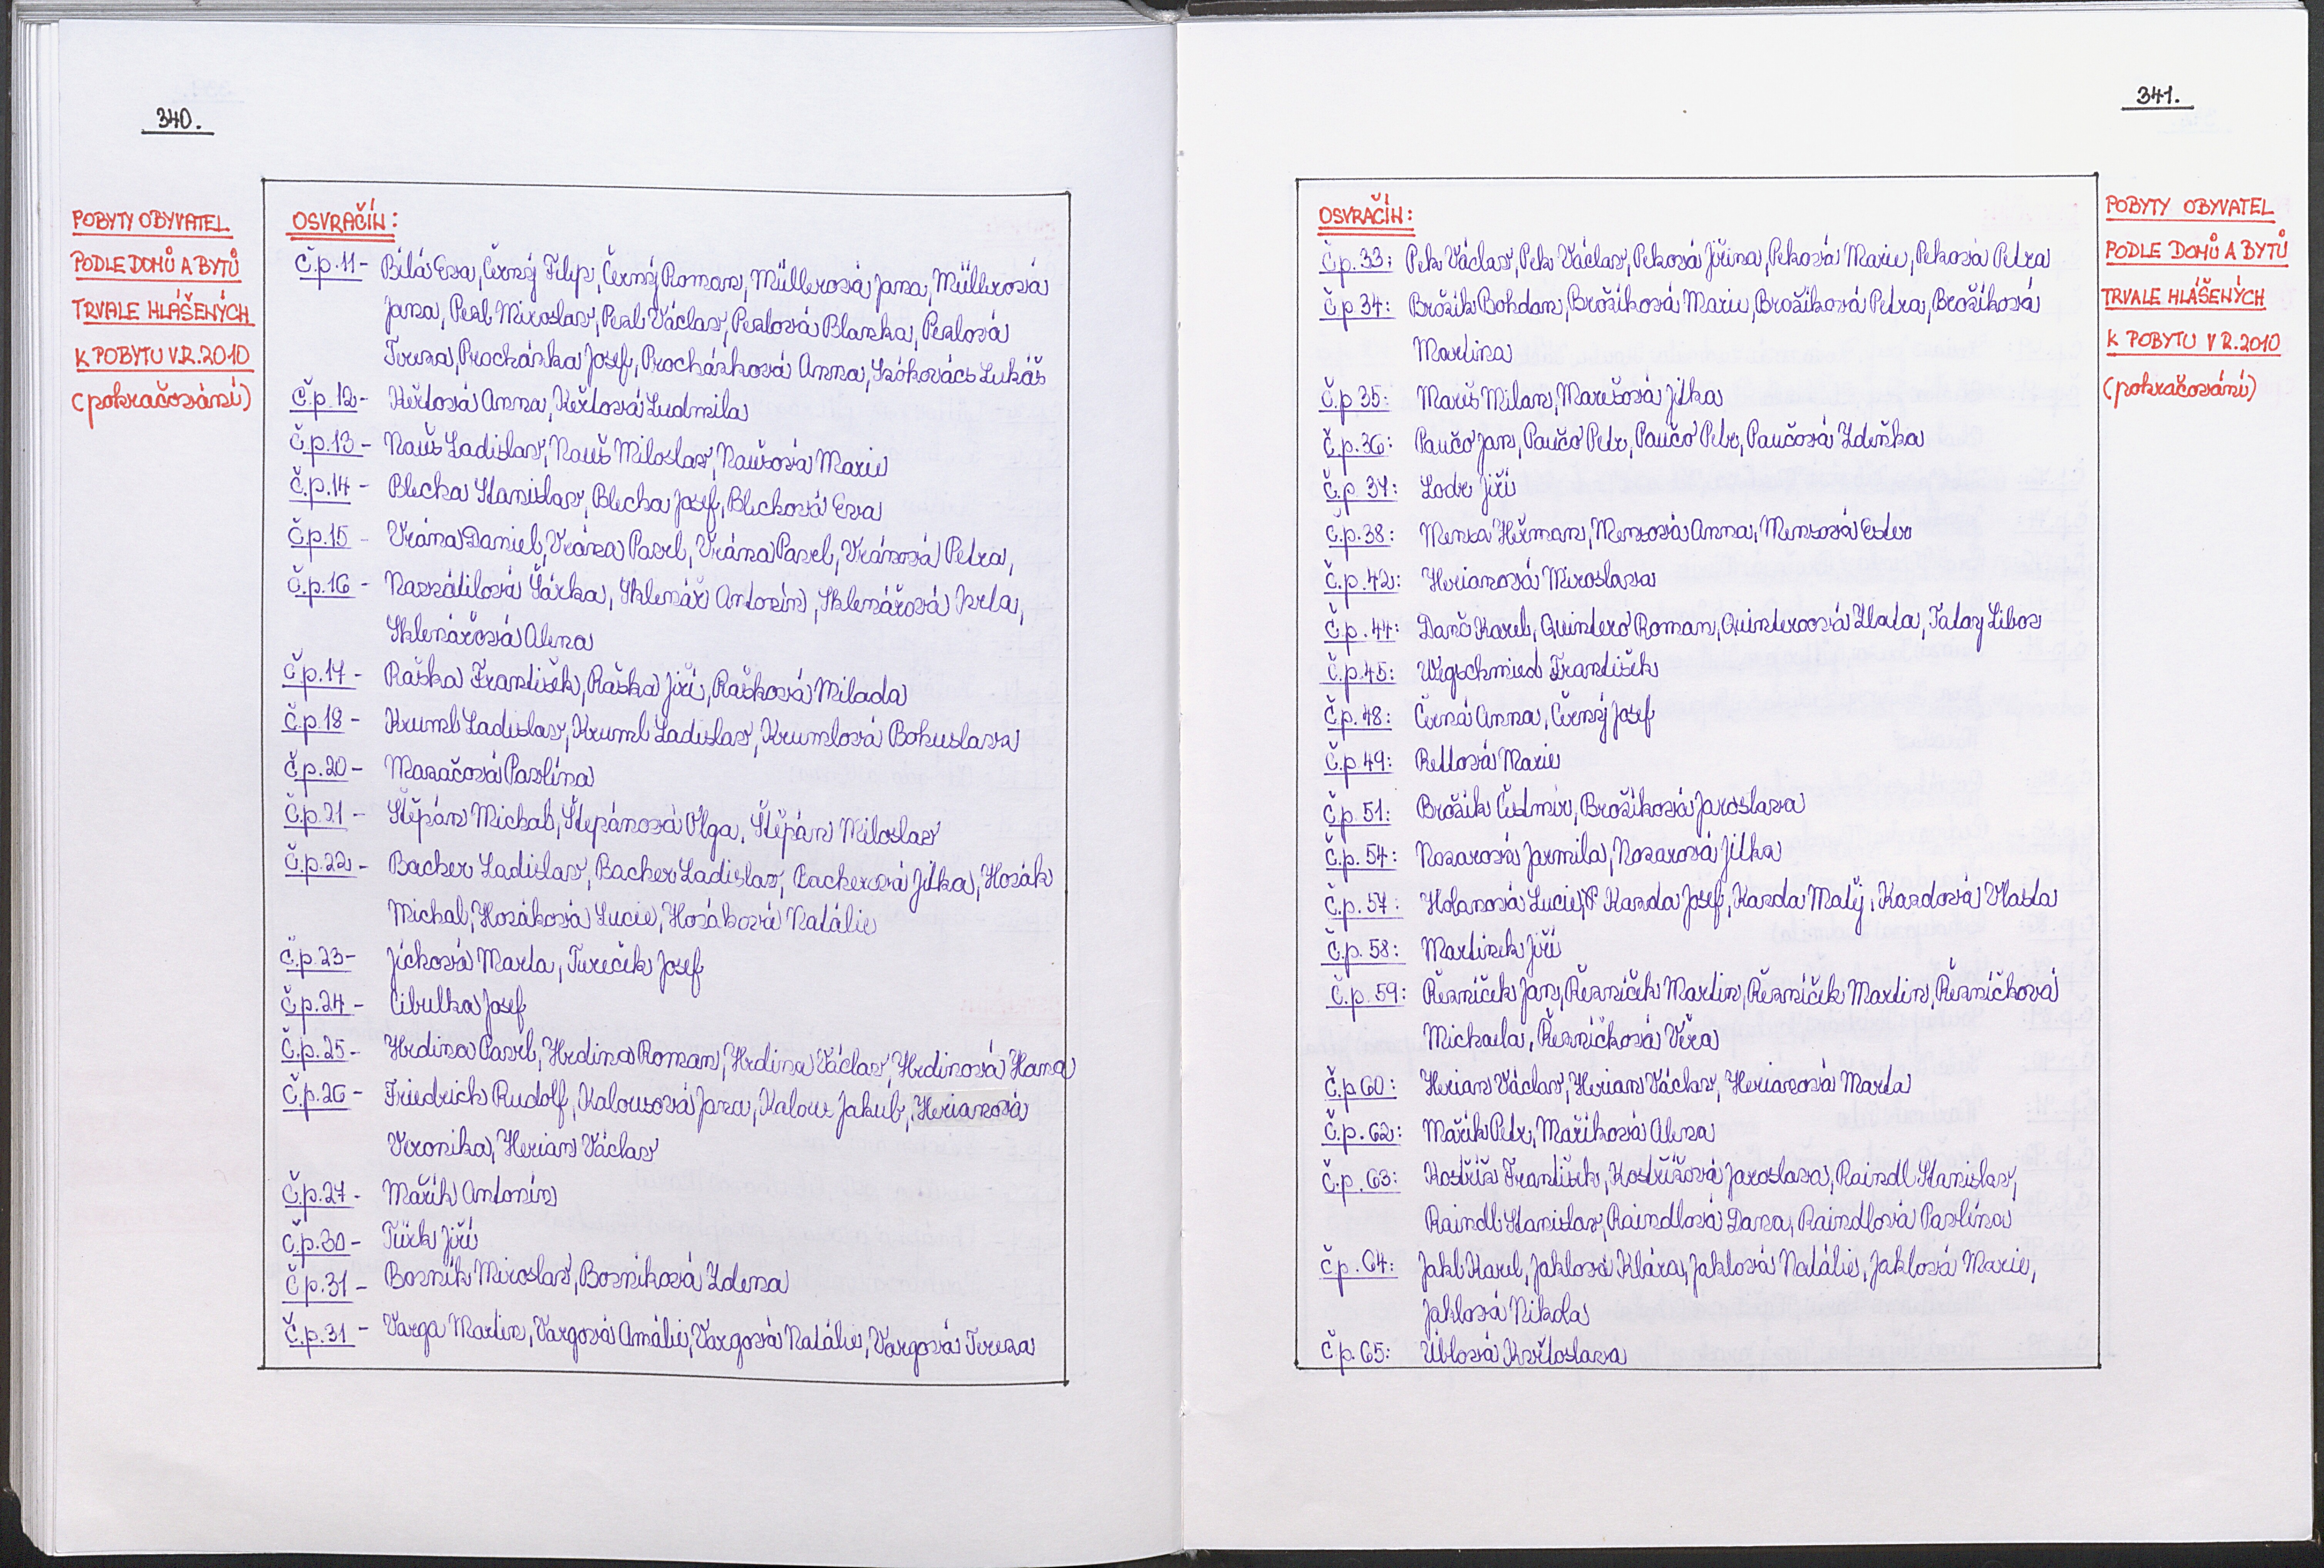 340.
POBYTY OBYVATEL
PODLE DOMŮ A BYTŮ
TRVALE HLÁŠENÝCH
K POBYTU V.R.2010
(pokračování)
OSVRAČÍN:
Č.p.11- Bílá Eva, Černý Filip, Černý Roman, Müllerová Jana, Müllerová
Jana, Perl Miroslav, Perl Václav, Perlová Blanka, Perlová
Tereza, Procházka Josef, Procházková Anna, Lukáš
Č.p.12- Keřtová Anna, Keřtová Ludmila
Č.p.13- Nauš Ladislav, Nauš Miloslav, Naušová Marie
Č.p.14- Blecha Stanislav, Blecha Josef, Blechová Eva
Č.p.15- Vrána Daniel, Vrána Pavel, Vrána Pavel, Vránová Petra,
Č.p.16- Navrátilová Šárka, Sklenář Antonín, Sklenářová Iveta,
Sklenářová Alena
Č.p.17- Raška František, Raška Jiří, Rašková Milada
Č.p.18- Kruml Ladislav, Kruml Ladislav, Krumlová Bohuslava
Č.p.20- Mazačová Pavlína
Č.p.21- Štěpán Michal, Štepánová Olga, Štěpán Miloslav
Č.p.22- Bacher Ladislav, Bacher Ladislav, Bacherová Jitka, Hozák
Michal, Hozáková Lucie, Hozáková Natálie
Č.p.23- Jíchová Marta, Tureček Josef
Č.p.24- Cibulka Josef
Č.p.25- Hrdina Pavel, Hrdina Roman, Hrdina Václav, Hrdinová Hana
Č.p.26- Friedrich Rudolf, Kalousová Jana, Kalous Jakub, Herianová
Veronika, Herian Václav
Č.p.27- Mařík Antonín
Č.p.30- Türk Jiří
Č.p.31- Bozník Miroslav, Bozníková Zdena
Č.p.31- Varga Martin, Vargová Amálie, Vargová Natálie, Vargová Tereza
341.
OSVRAČÍN:
Č.p.33: Pek Václav, Pek Václav, Peková Jiřina, Peková Marie, Peková Petra
Č.p 34: Brožík Bohdan, Brožíková Marie, Brožíková Petra, Brožíková
Martina
Č.p 35: Mareš Milan, Marešová Jitka
Č.p.36: Paučo Jan, Paučo Petr, Paučo Petr, Paučová Zdeňka
Č.p 37: Lodr Jiří
Č.p.38: Menza Heřman, Menzová Anna, Menzová Ester
Č.p.42: Herianová Miroslava
Č.p.44: Danč Karel, Quintero Roman, Quinteroová Zlata, Libor
Č.p.45: Wegschmied František
Č.p.48: Černá Anna, Černý Josef
Č.p.49: Rettová Marie
Č.p.51: Brožík Čestmír, Brožíková Jaroslava
Č.p.54: Nozarová Jarmila, Nozarová Jitka
Č.p.57: Holanová Lucie, Karda Josef, Karda Matěj, Kardová Vlasta
Č.p.58: Martínek Jiří
Č.p.59: Řezníček Jan, Řezníček Martin, Řezníček Martin, Řezníčková
Michaela, Řezníčková Věra
Č.p 60: Herian Václav, Herian Václav, Herianová Marta
Č.p.62: Mařík Petr, Maříková Alena
Č.p.63: Kostříž František, Kostřížová Jaroslava, Raindl Stanislav,
Raindl Stanislav, Raindlová Dana, Raindlová Pavlína
Č.p.64: Jakl Karel, Jaklová Klára, Jaklová Natálie, Jaklová Marie,
Jaklová Nikola
Č.p.65: Üblová Květoslava
POBYTY OBYVATEL
PODLE DOMŮ A BYTŮ
TRVALE HLÁŠENÝCH
K POBYTU V R.2010
(pokračování)